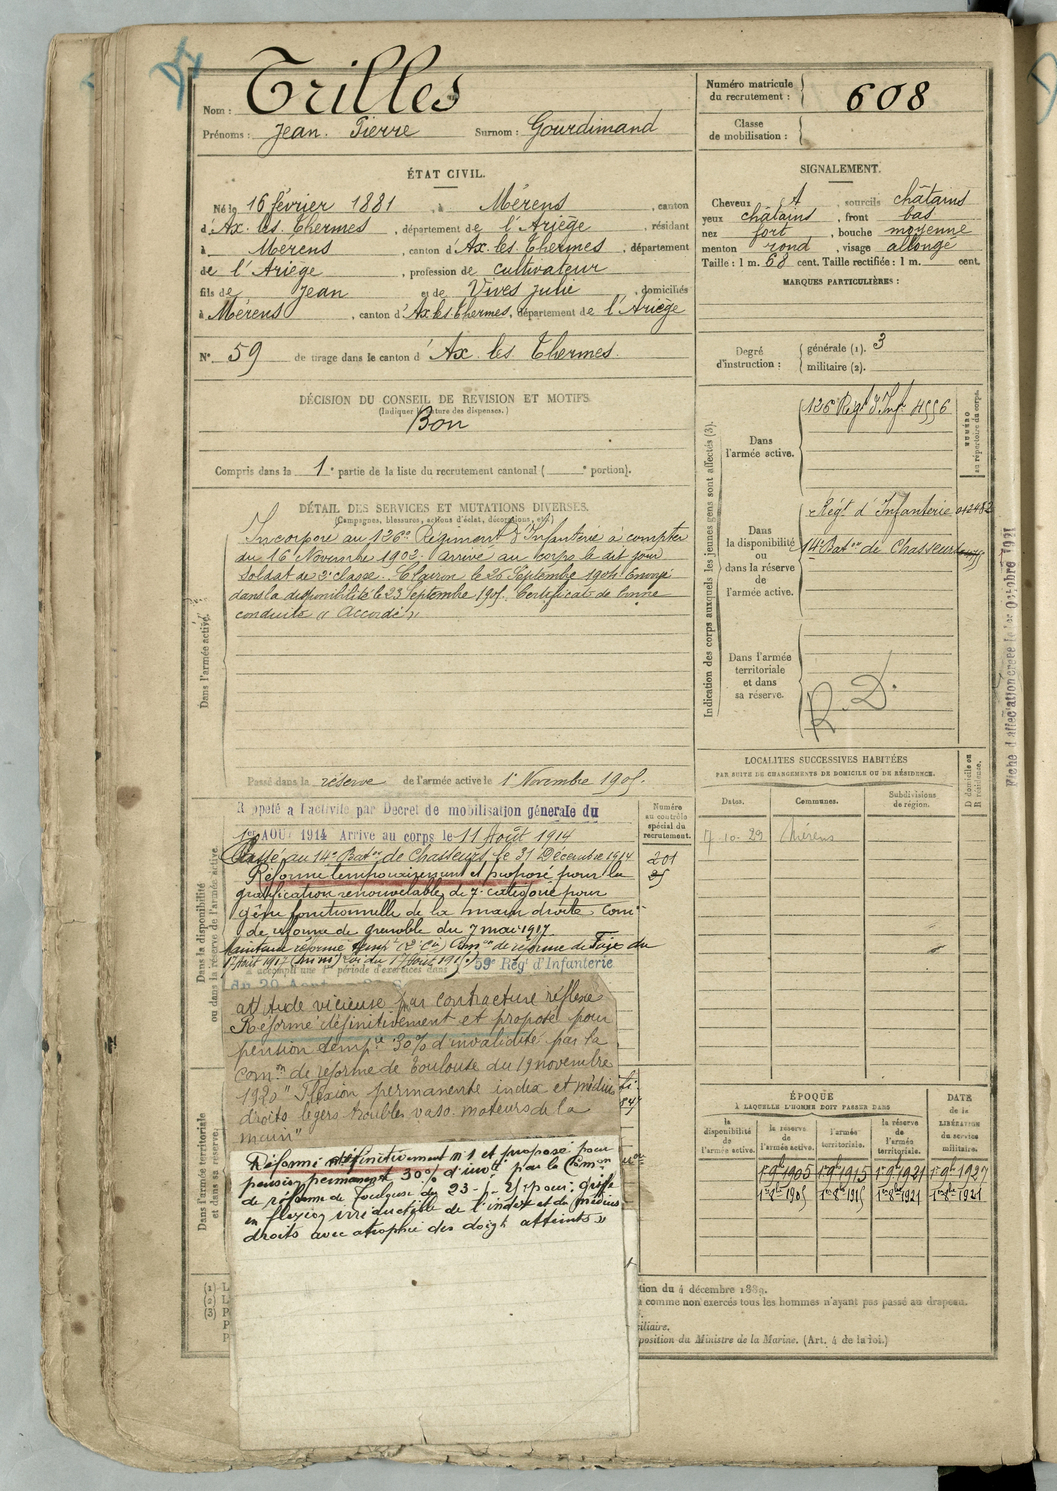 Nom : Trilles
Prénoms : Jean Pierre Surnom : Gourdimand
Numéro matricule du recrutement : 608
Classe de mobilisation :
ÉTAT CIVIL.
Né le 16 février 1881, à Mérens, canton
d'Ax les Thermes, département de l'Ariège, résidant
à Mérens, canton d'Ax les Thermes, département
de l'Ariège, profession de cultivateur
fils de Jean et de Vives Julie, domiciliés
à Mérens, canton d'Ax les Thermes, département de l'Ariège
N° 59 de tirage dans le canton d'Ax les Thermes.
SIGNALEMENT.
Cheveux A, sourcils châtains
yeux châtains, front bas
nez fort, bouche moyenne
menton rond, visage allongé
Taille : 1 m. 68 cent. Taille rectifiée : 1 m. cent.
MARQUES PARTICULIÈRES :
Degré d'instruction : générale (1). 3
militaire (2).
DÉCISION DU CONSEIL DE REVISION ET MOTIFS.
(Indiquer la nature des dispenses.)
Bon
Compris dans la 1e partie de la liste du recrutement cantonal ( e portion).
DÉTAIL DES SERVICES ET MUTATIONS DIVERSES.
(Campagnes, blessures, actions d'éclat, décorations, etc.)
Dans l'armée active.
Incorporé au 126e Régiment d'Infanterie à compter
du 16 Novembre 1902. Arrivé au corps le dit jour
Soldat de 2e classe. Clairon le 26 Septembre 1904 Envoyé
dans la disponibilité le 23 Septembre 1905. Certificat de bonne
conduite "Accordé".
Passé dans la réserve de l'armée active le 1er Novembre 1905.
Indication des corps auxquels les jeunes gens sont affectés (3).
NUMÉRO au répertoire du corps.
Dans l'armée active.
126e Régt d'Infie 4556
Dans la disponibilité ou dans la réserve de l'armée active.
Régt d'Infanterie 012482
14e Baton de Chasseurs
Dans l'armée territoriale et dans sa réserve.
R. D.
Fiche d'affectation créée le 1er Octobre 1921
LOCALITÉS SUCCESSIVES HABITÉES
PAR SUITE DE CHANGEMENTS DE DOMICILE OU DE RÉSIDENCE.
Dates. Communes. Subdivisions de région. D domicile ou R résidence.
7-10-29 Mérens
Dans la disponibilité ou dans la réserve de l'armée active.
Numéro au contrôle spécial du recrutement.
201
Rappelé à l'activité par Decret de mobilisation génerale du
1er AOUT 1914 Arrivé au corps le 11 Août 1914
Passé au 14e Baton de Chasseurs le 31 Décembre 1914
Réformé temporairement et proposé pour la
gratification renouvelable de 7e catégorie pour
gêne fonctionnelle de la main droite Comon
de réforme de Grenoble du 7 mai 1917
Maintenu réformé tempre Comon de réforme de Foix du
59e Régt d'Infanterie
attitude vicieuse par contracture réflexe
Réformé définitivement et proposé pour
pension tempre 30% d'invalidité par la
Comon de réforme de Toulouse du 19 novembre
1920 "Flexion permanente index et médius
droits légers troubles vaso-moteurs de la
main"
Réformé définitivement n°1 et proposé pour
pension permanent 30% d'invté par la Comon
de réforme de Toulouse du 23-1-25 pour : griffe
en flexion irréductible de l'index et du médius
droits avec atrophie des doigts atteints »
Dans l'armée territoriale et dans sa réserve.
ÉPOQUE
À LAQUELLE L'HOMME DOIT PASSER DANS
la disponibilité de l'armée active. la réserve de l'armée active. l'armée territoriale. la réserve de l'armée territoriale. DATE de la LIBÉRATION du service militaire.
1er 9bre 1905 1er 9bre 1915 1er 9bre 1921 1er 9bre 1927
1er 8bre 1905 1er 8bre 1915 1er 8bre 1921
(1) L
(2) L
(3) P
tion du 4 décembre 1889.
comme non exercés tous les hommes n'ayant pas passé au drapeau.
iliaire.
position du Ministre de la Marine. (Art. 4 de la loi.)